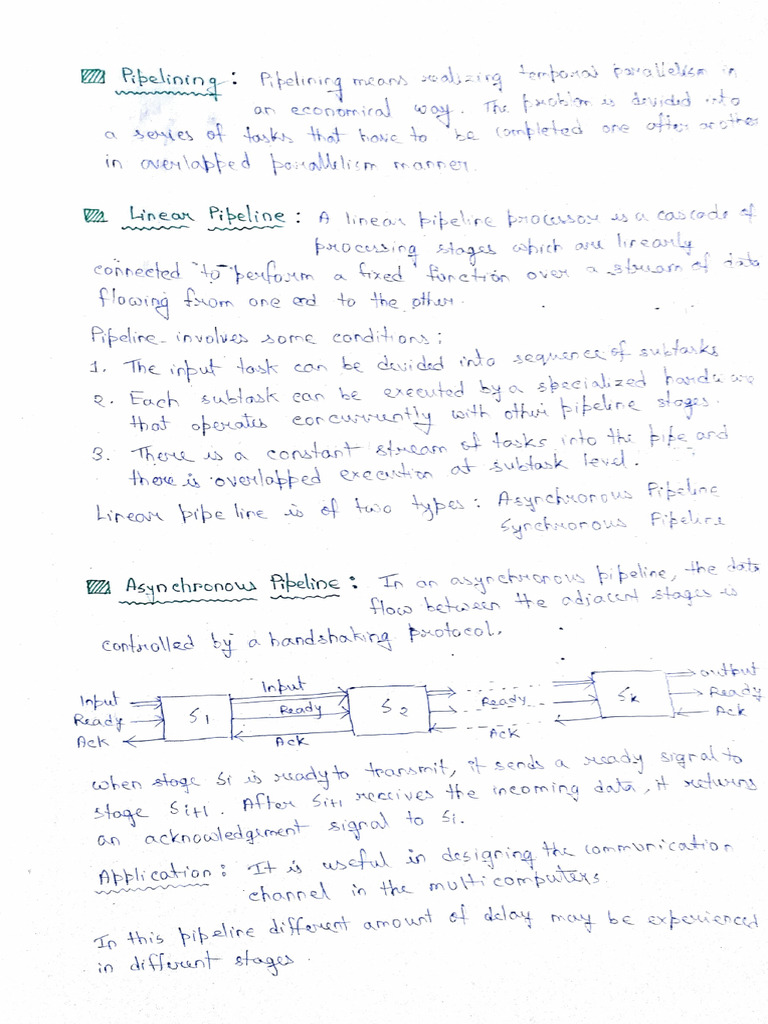 Pipelining : Pipelining means realizing temporal parallelism in
an economical way. The problem is devided into
a series of tasks that have to be completed one after another
in overlapped parallelism manner.
Linear Pipeline : A linear pipeline processor is a cascade of
processing stages which are linearly
connected to perform a fixed function over a stream of data
flowing from one ed to the other.
Pipeline involves some conditions :
1. The input task can be devided into sequence of subtasks
2. Each subtask can be executed by a specialized hardware
that operates concurrently with other pipeline stages.
3. There is a constant stream of tasks into the pipe and
there is overlapped execution at subtask level.
Linear pipe line is of two types : Asynchronous Pipeline
Synchronous Pipeline
Asynchronous Pipeline : In an asynchronous pipeline, the data
flow between the adjacent stages is
controlled by a handshaking protocol.
Input S1 Input S2 Sk output
Ready Ready Ready Ready
Ack Ack Ack Ack
when stage Si is ready to transmit, it sends a ready signal to
stage Si+1. After Si+1 receives the incoming data, it returns
an acknowledgement signal to Si.
Application : It is useful in designing the communication
channel in the multicomputers.
In this pipeline different amount of delay may be experienced
in different stages.